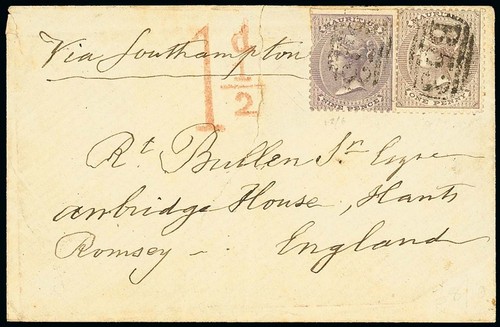 Via Southampton
1d 1/2
MAURITIUS
NINE PENCE
MAURITIUS
ONE PENNY
B53
Rt. Bullen Sr Esqre
Anbridge House, Hants
Romsey — England